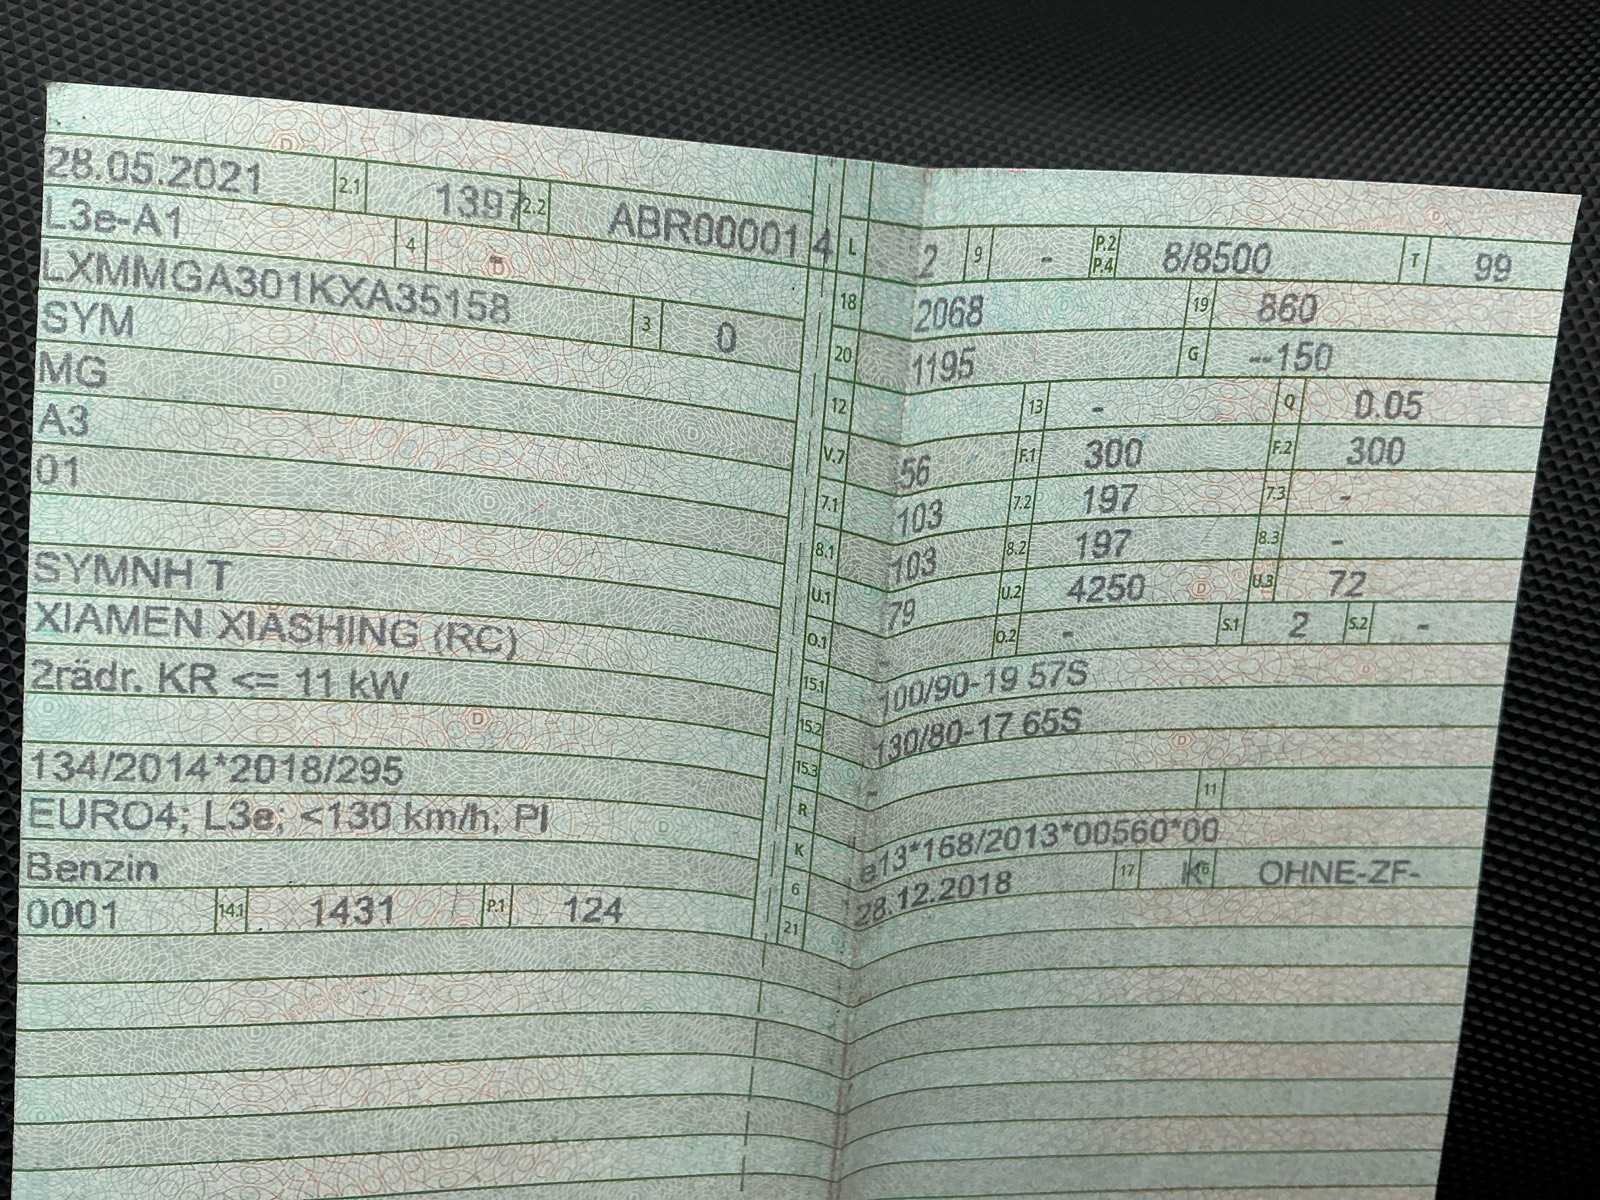 28.05.2021 2.1 1397 2.2 ABR00001 4
L3e-A1 4 -
LXMMGA301KXA35158 3 0
SYM
MG
A3
01
SYMNH T
XIAMEN XIASHING (RC)
2rädr. KR <= 11 kW
134/2014*2018/295
EURO4; L3e; <130 km/h; PI
Benzin
0001 14.1 1431 P.1 124
L 2 9 - P.2 P.4 8/8500 T 99
18 2068 19 860
20 1195 G --150
12 13 - Q 0.05
V.7 56 F.1 300 F.2 300
7.1 103 7.2 197 7.3 -
8.1 103 8.2 197 8.3 -
U.1 79 U.2 4250 U.3 72
O.1 - O.2 - S.1 2 S.2 -
15.1 100/90-19 57S
15.2 130/80-17 65S
15.3 -
R 11
K e13*168/2013*00560*00
6 28.12.2018 17 K 16 OHNE-ZF-
21